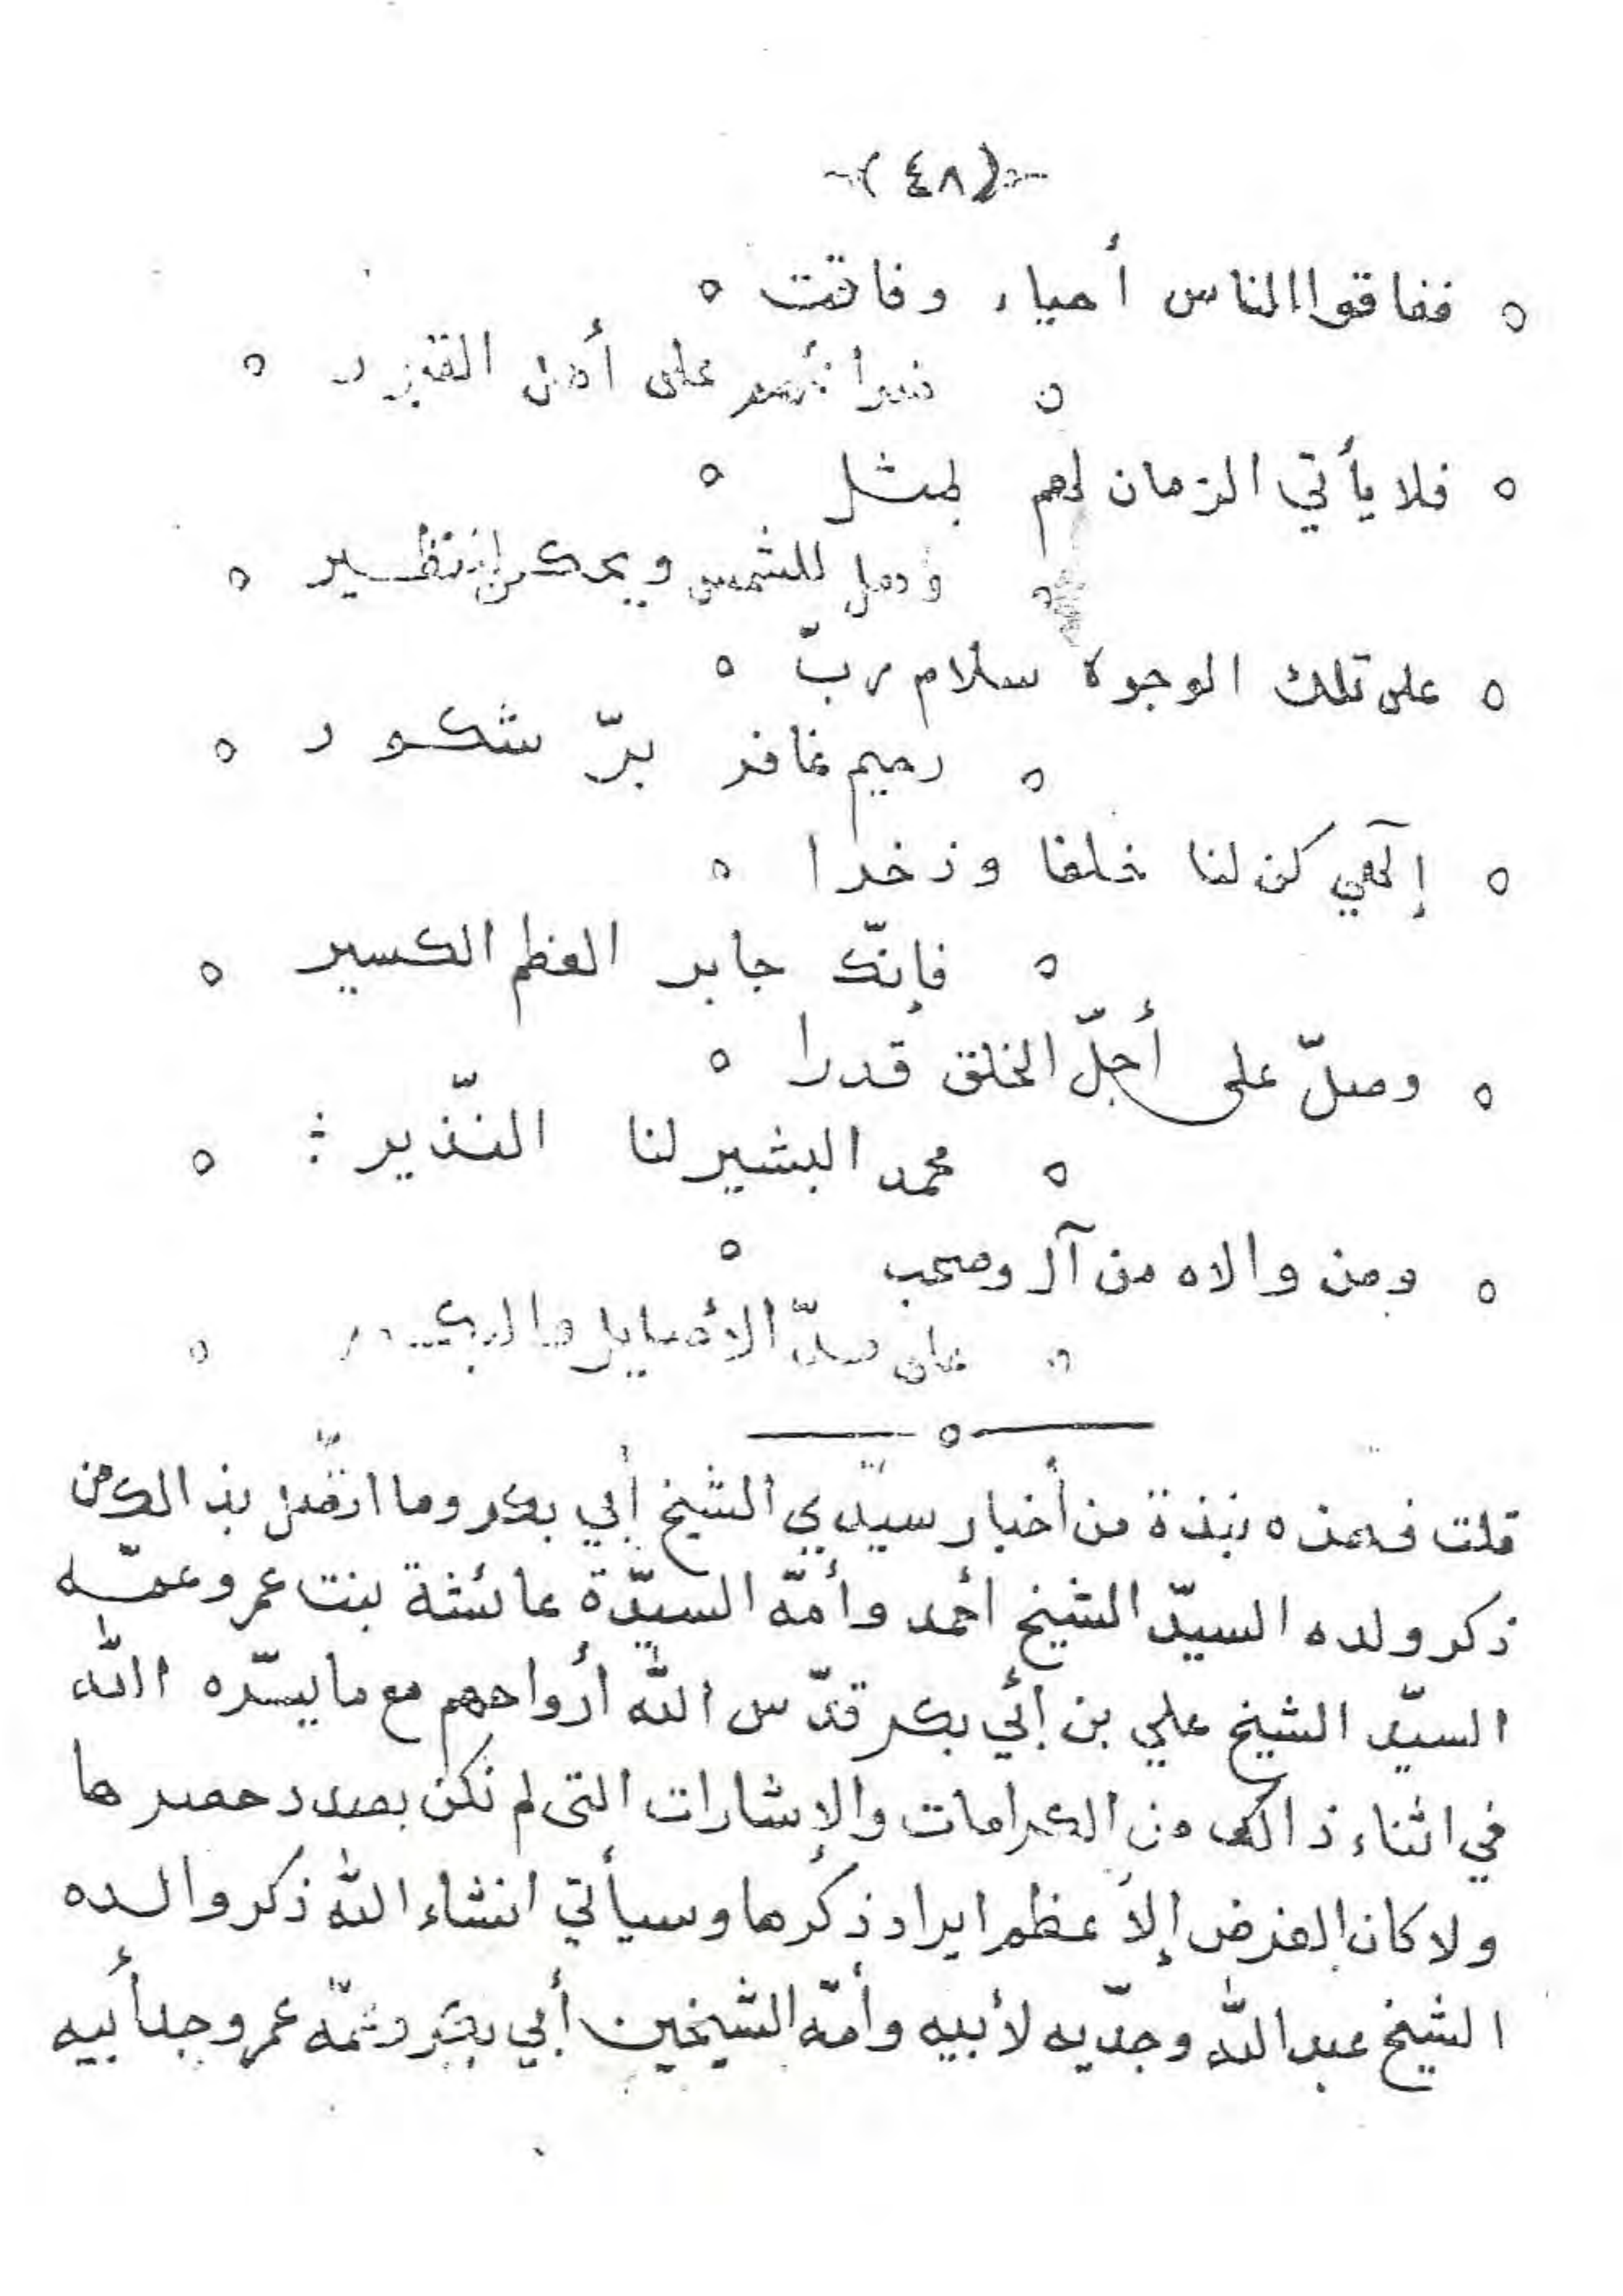 (٤٨)
ففاقوا الناس أحياء وفاقت
ضرائحهم على أهل القبور
فلا يأتي الزمان لهم بمثل
وهل للشمس ويحك من نظير
على تلك الوجوه سلام ربّ
رحيم غافر برّ شكور
إلٓهي كن لنا خلفا وذخرا
فإنّك جابر العظم الكسير
وصلّ على أجلّ الخلق قدرا
محمد البشير لنا النّذير
ومن والاه من آل وصحب
على مدّ الأصايل والبكور
قلت فهذه نبذة من أخبار سيّدي الشيخ أبي بكر وما اتّصل بذالك من
ذكر ولده السيّد الشيخ أحمد وأمّه السيّدة عائشة بنت عمر وعمّه
السيّد الشيخ علي بن أبي بكر قدّس اللّه أرواحهم مع ما يسّره اللّه
في اثناء ذالك من الكرامات والإشارات التى لم نكن بصدد حصرها
ولا كان الغرض إلاّ عظم ايراد ذكرها وسيأتي انشاء اللّه ذكر والده
الشيخ عبد اللّه وجدّيه لأبيه وأمّه الشيخين أبي بكر وعمّه عمر وجد أبيه